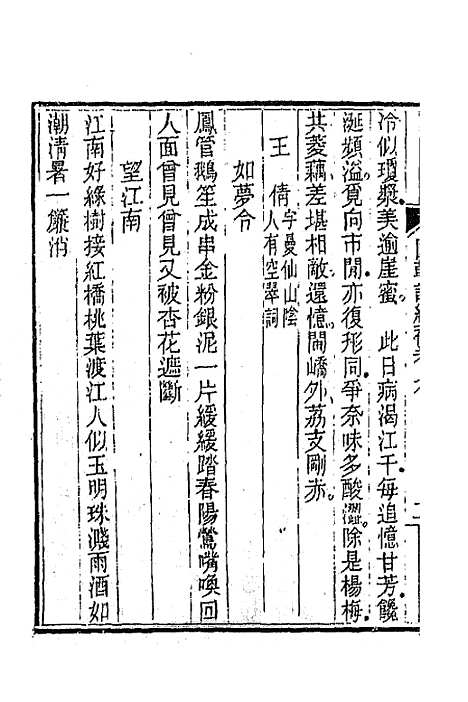 冷似瓊漿美逾崖蜜　此日病渴江千每追憶甘芳饞
涎頻溢覓向市閒亦復形同爭奈味多酸澀除是楊梅
共菱藕差堪相敵還憶閩嶠外荔支剛赤
王　倩字曼仙山陰人有空翠詞
如夢令
鳳管鵝笙成串金粉銀泥一片緩緩踏春陽鶯嘴喚回
人面曾見曾見又被杏花遮斷
望江南
江南好綠樹接紅橋桃葉渡江人似玉明珠濺雨酒如
潮清暑一簾消